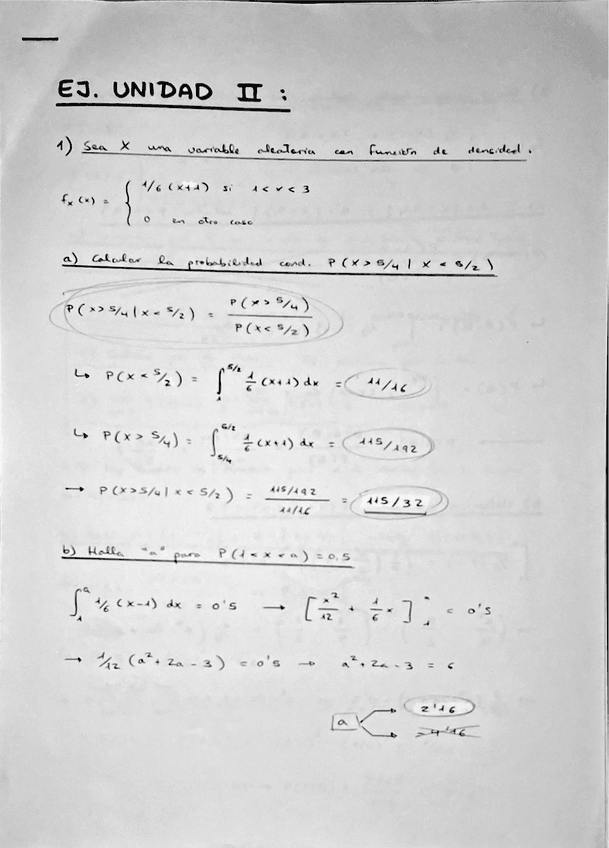 EJ. UNIDAD II :
1) Sea X una variable aleatoria con función de densidad.
fx (x) = { 1/6 (x+1) si 1 < x < 3
0 en otro caso
a) Calcular la probabilidad cond. P (X > 5/4 | X < 5/2)
P (x > 5/4 | x < 5/2) = P (x > 5/4) / P (x < 5/2)
↳ P (x < 5/2) = ∫₁^{5/2} 1/6 (x+1) dx = 11/16
↳ P (x > 5/4) = ∫_{5/4}^{5/2} 1/6 (x+1) dx = 115/192
→ P (x > 5/4 | x < 5/2) = 115/192 / 11/16 = 115/32
b) Halla "a" para P (1 < x < a) = 0,5
∫₁^a 1/6 (x-1) dx = 0'5 → [x²/12 + 1/6 x]₁^a = 0'5
→ 1/12 (a² + 2a - 3) = 0'5 → a² + 2a - 3 = 6
a → 2'16
→ -4'16